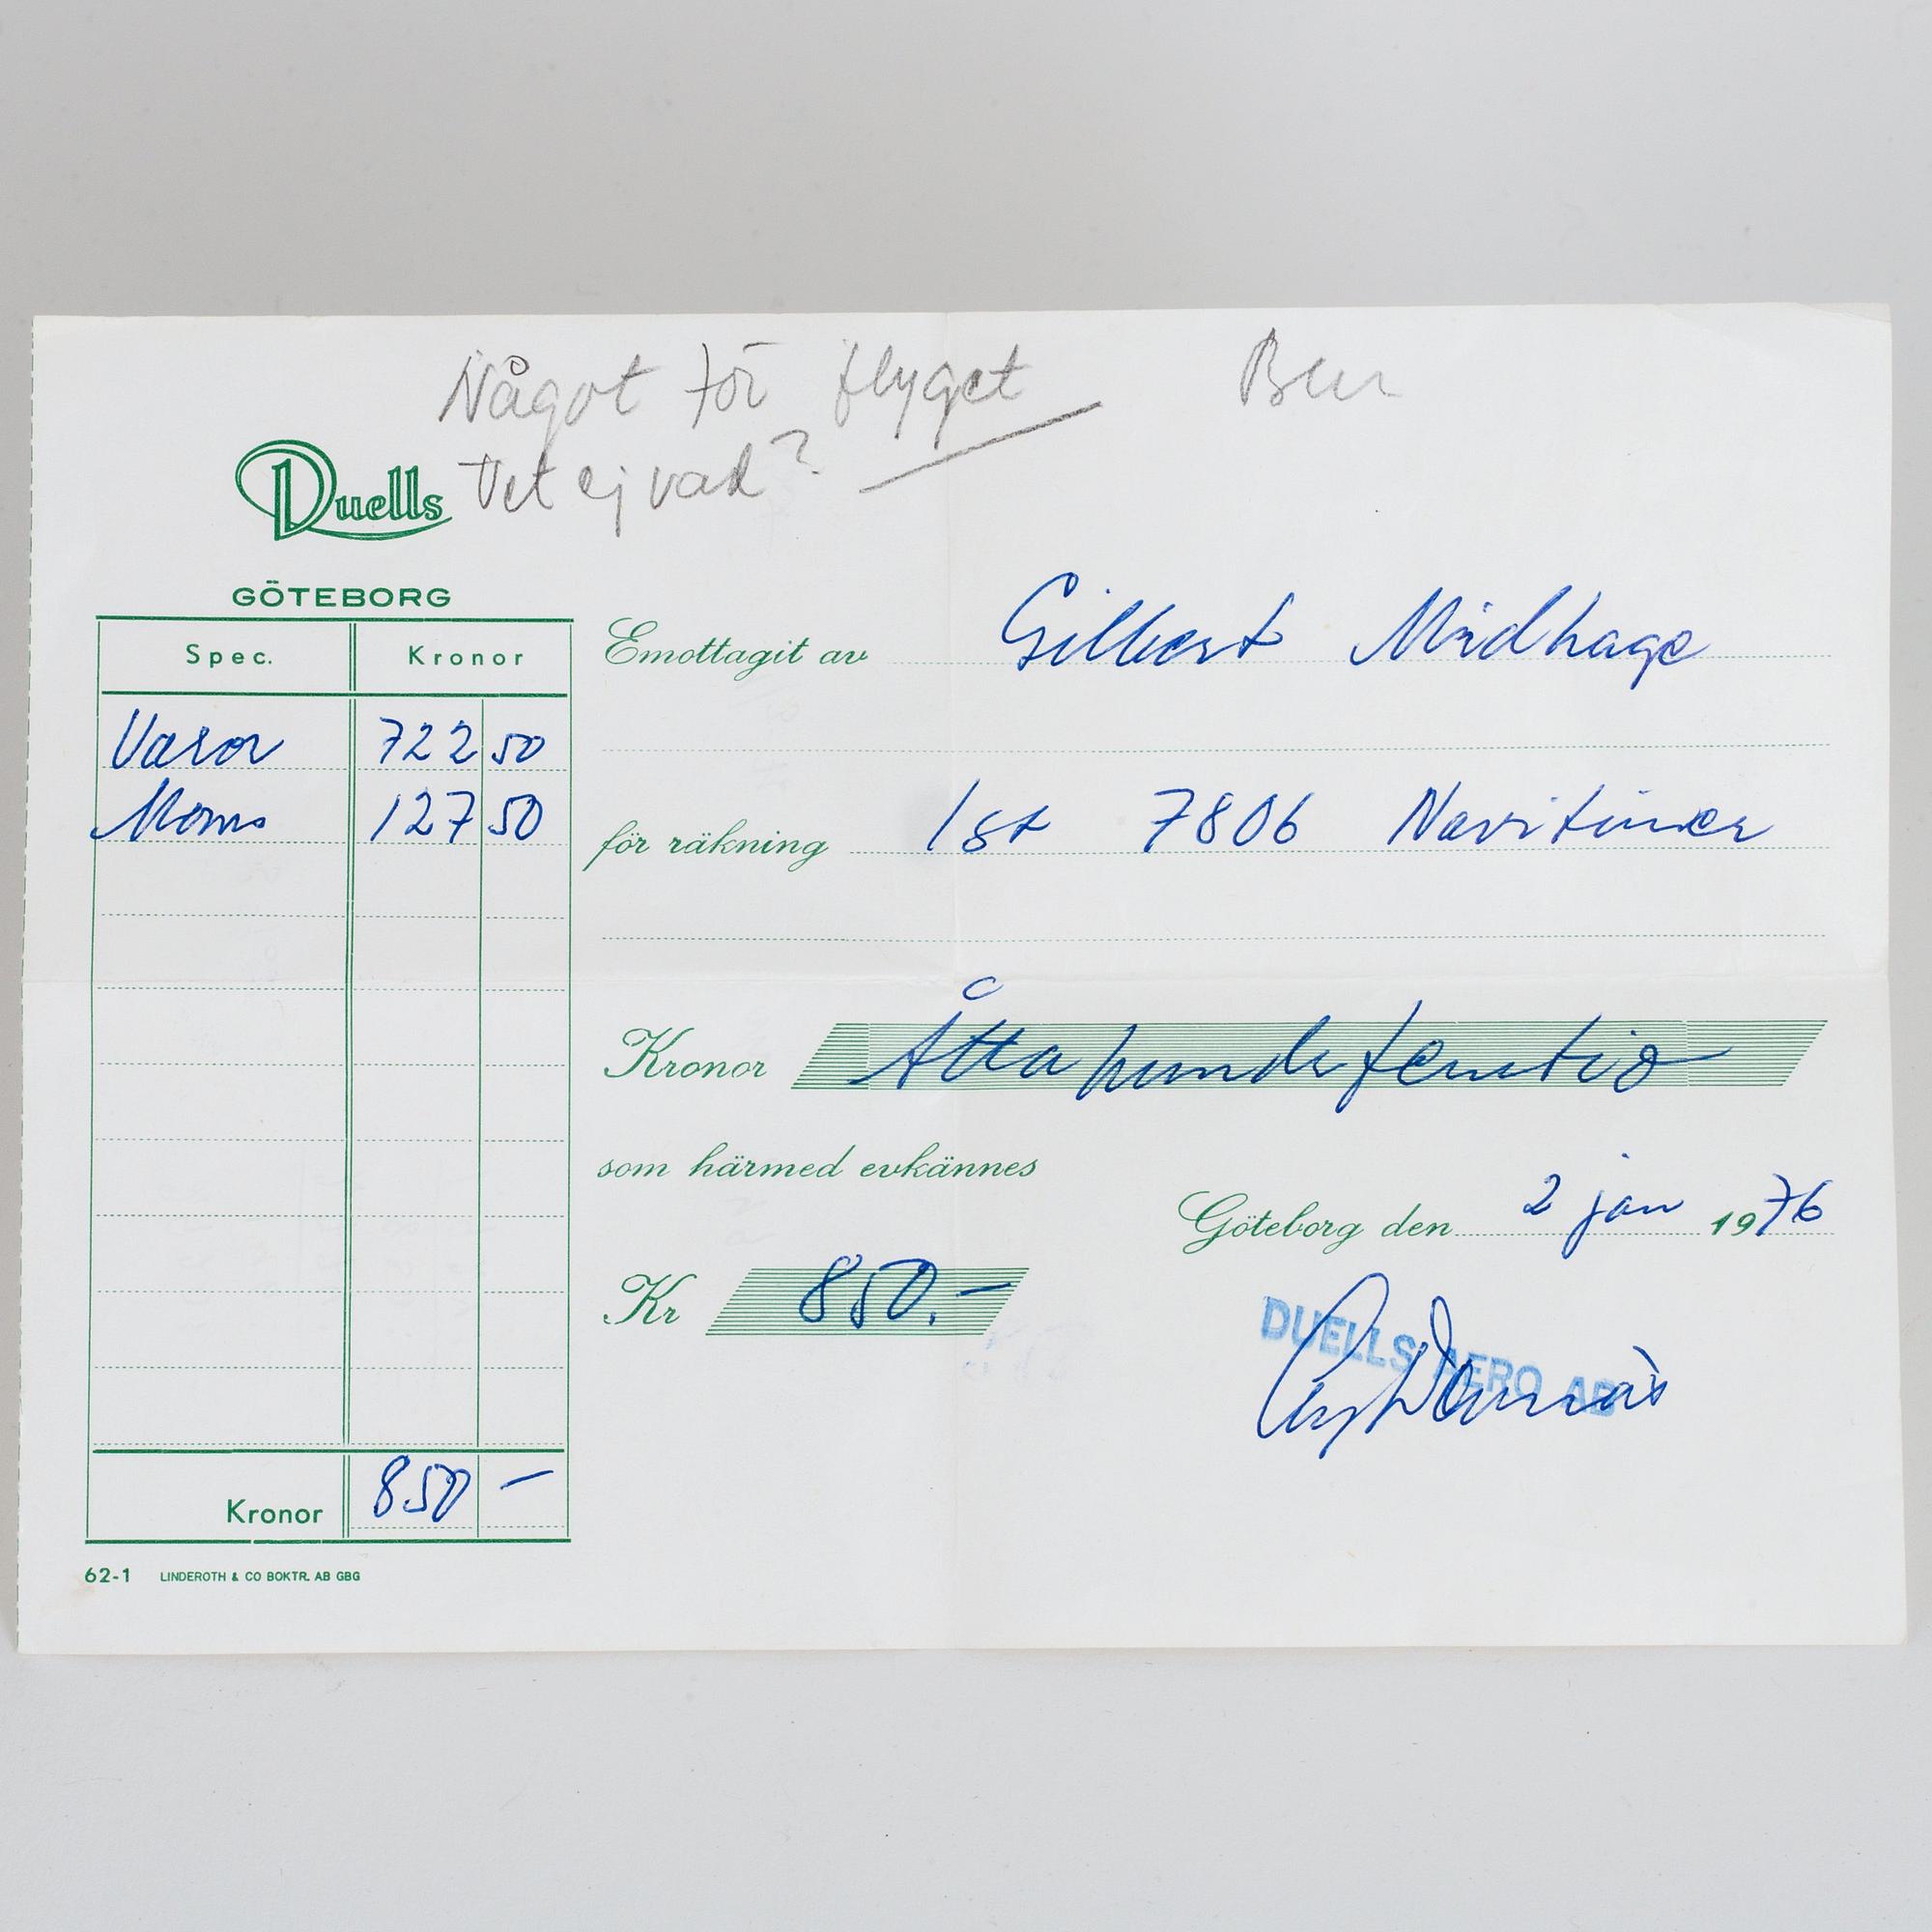 Något för flyget
Vet ej vad?
Duells
GÖTEBORG
Spec. Kronor
Varor 722 50
Moms 127 50
Kronor 850 –
62-1 LINDEROTH & CO BOKTR. AB GBG
Emottagit av Gilbert Midhage
för räkning 1 st 7806 Navitimer
Kronor Åttahundrafemtio
som härmed erkännes
Göteborg den 2 jan 1976
Kr 850.–
DUELLS AERO AB